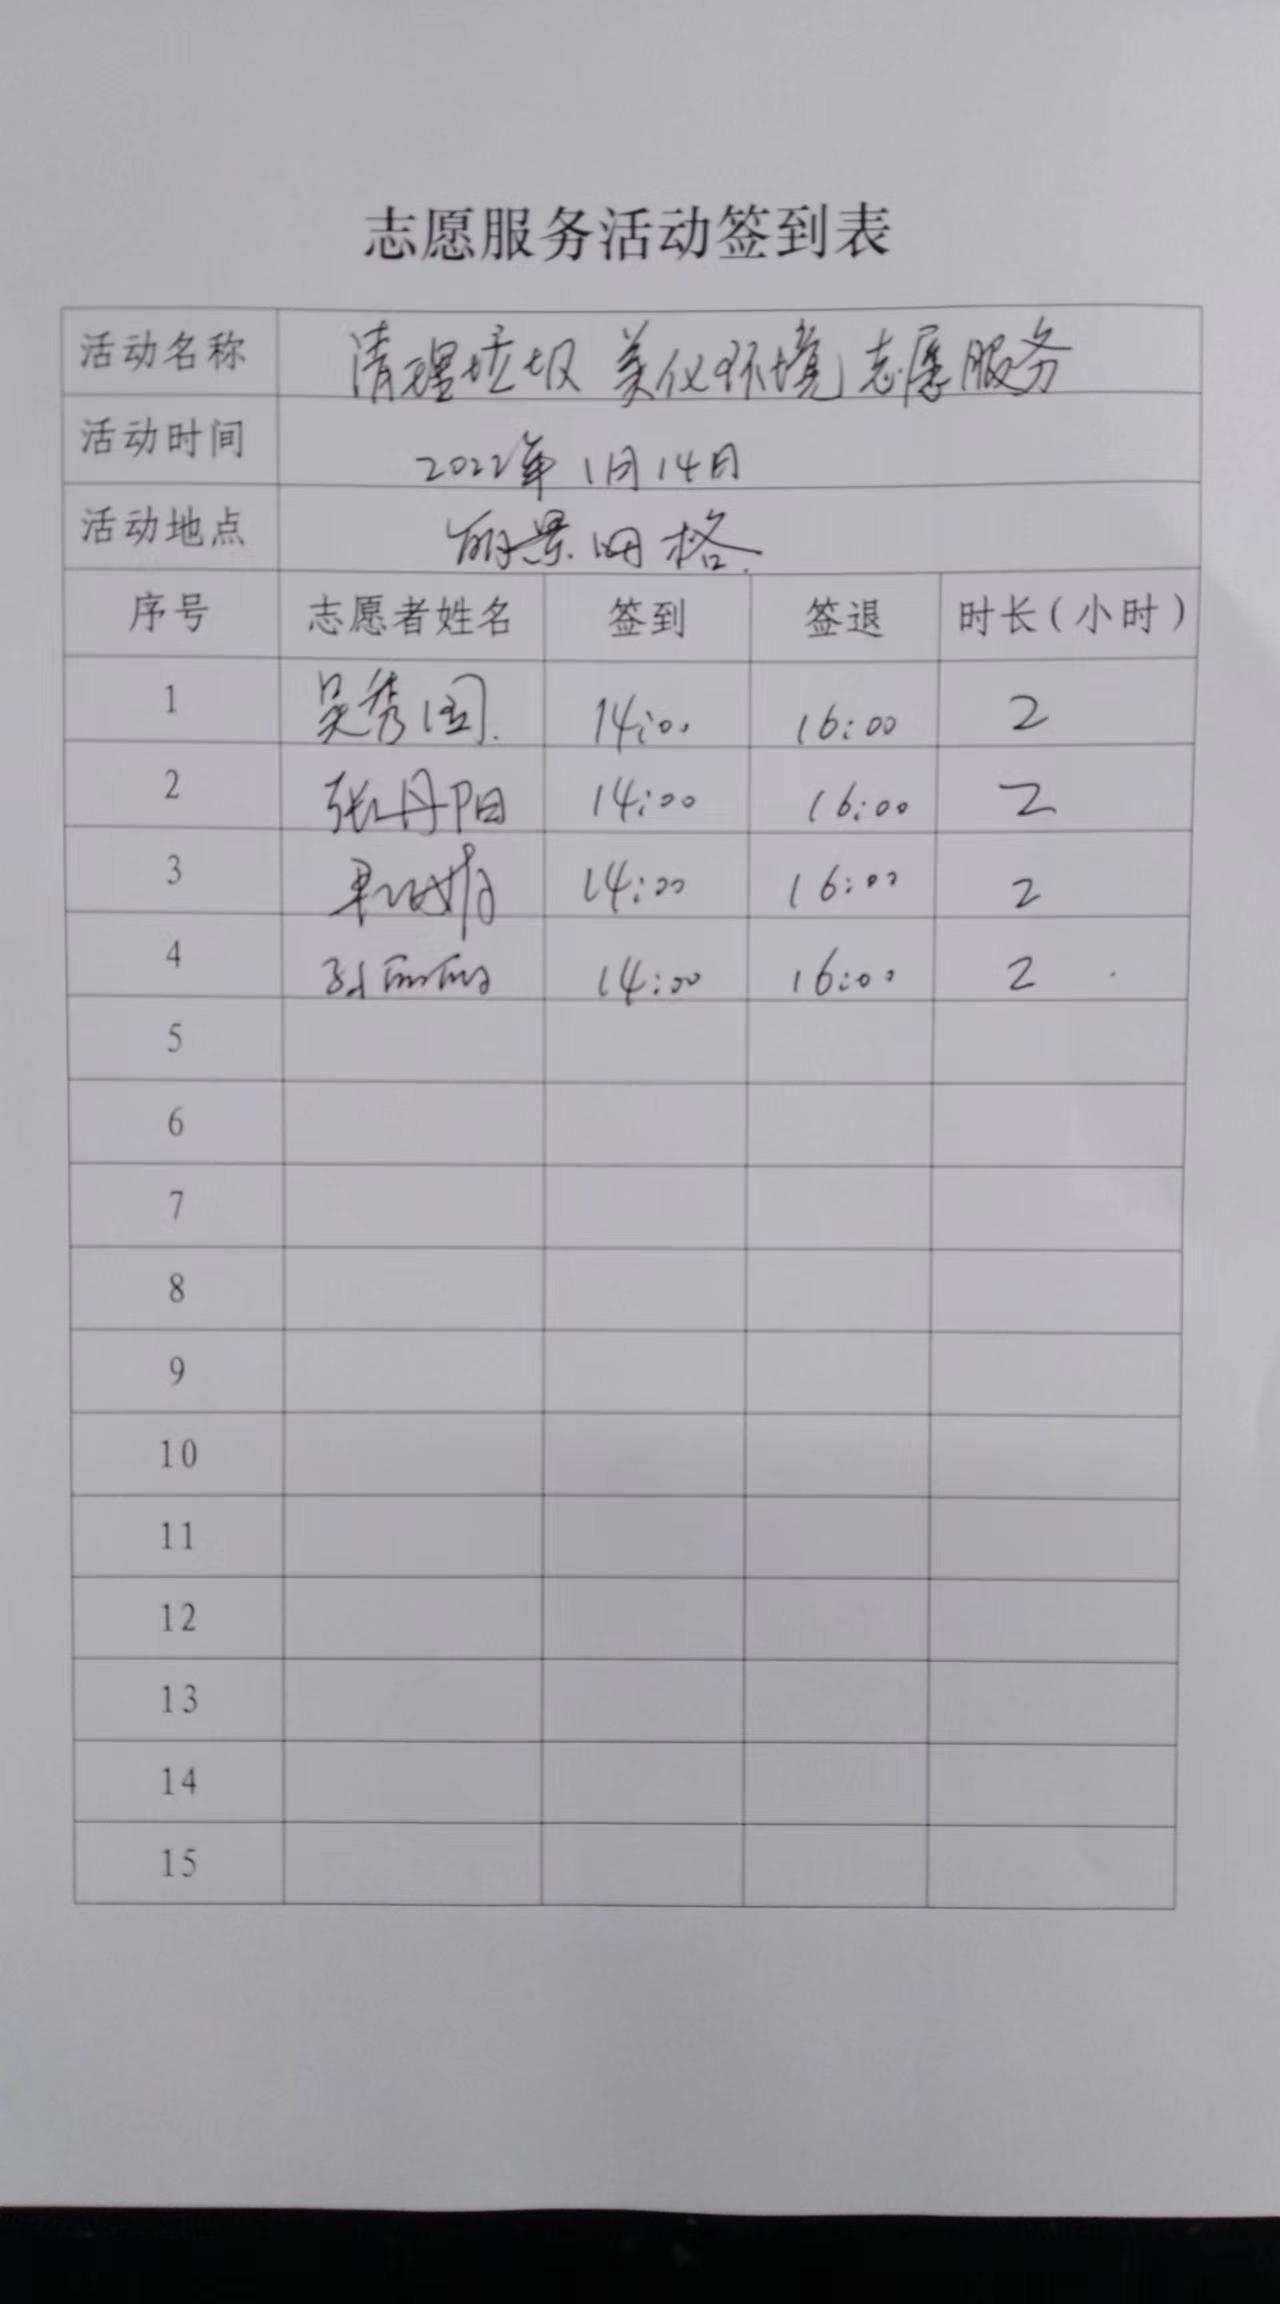 志愿服务活动签到表
活动名称 清理垃圾 美化环境志愿服务
活动时间 2022年1月14日
活动地点 丽景网格
序号 志愿者姓名 签到 签退 时长(小时)
1 吴秀国 14:00 16:00 2
2 张丹阳 14:00 16:00 2
3 14:00 16:00 2
4 孙丽丽 14:00 16:00 2
5
6
7
8
9
10
11
12
13
14
15